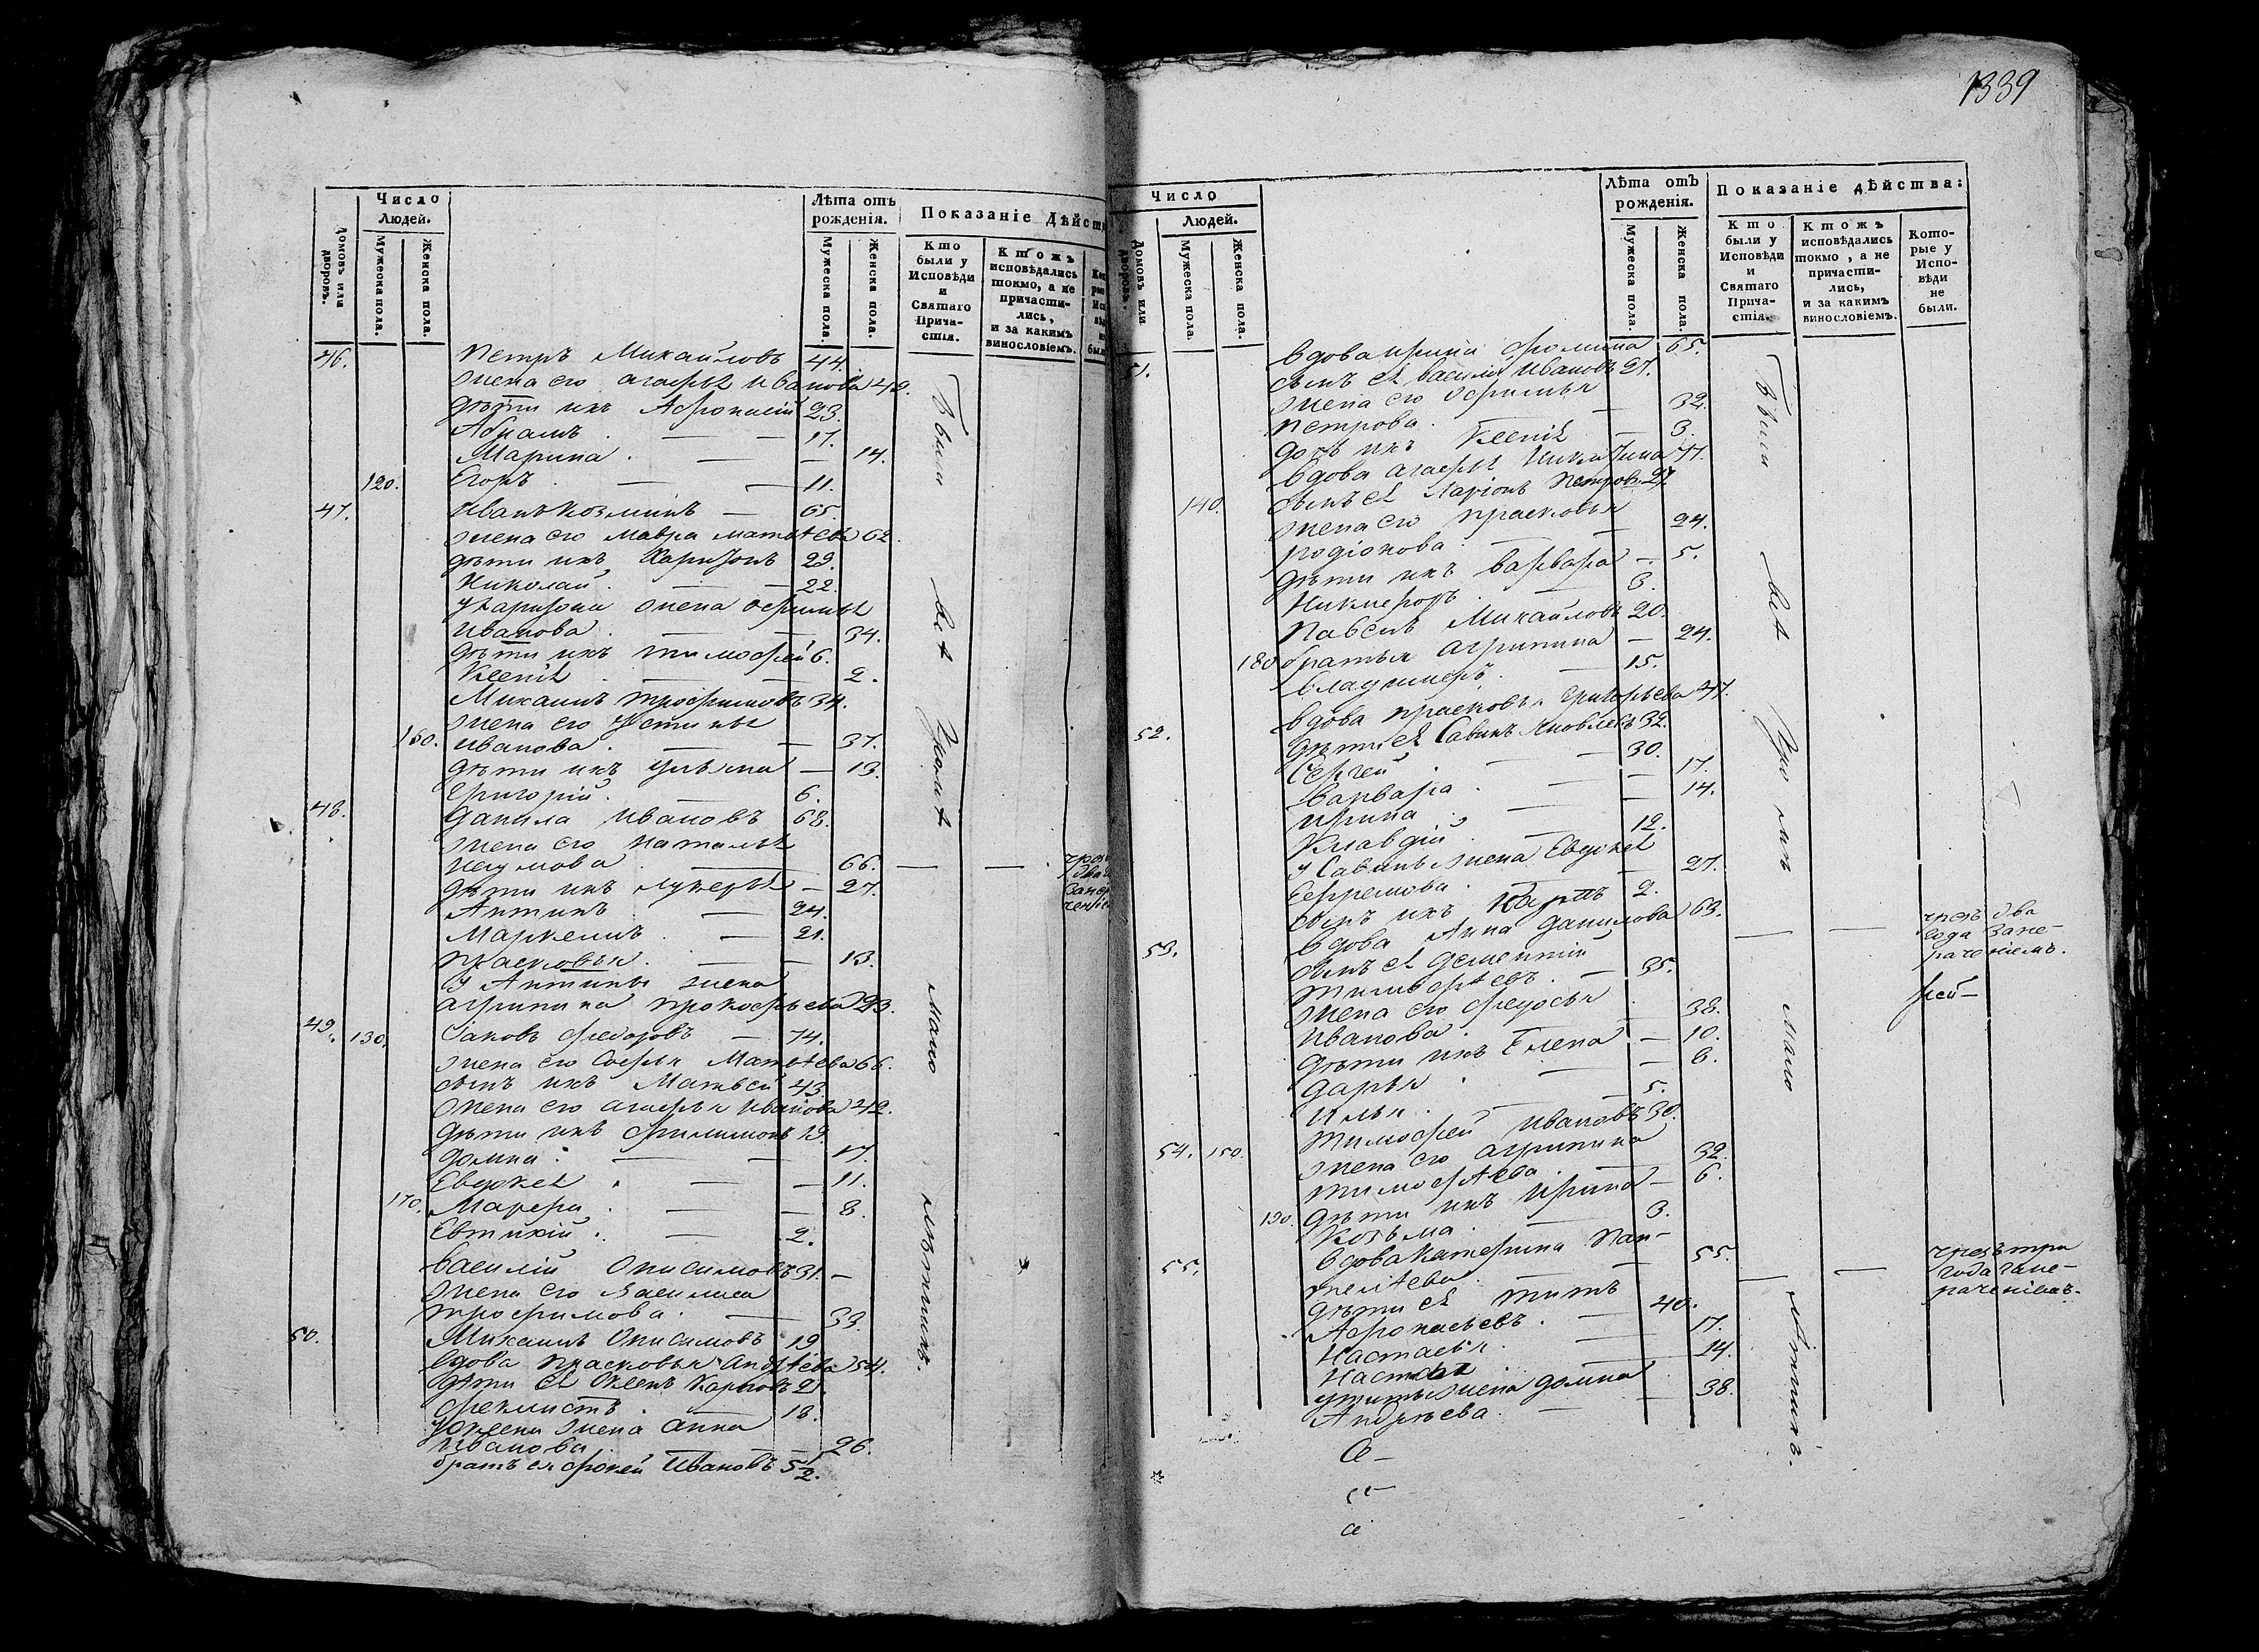 1339
Число
Людей.
Домовъ или дворовъ.
Мужеска пола.
Женска пола.
Лѣта отъ рожденія.
Мужеска пола.
Женска пола.
Показаніе Дѣйст
Кто были у Исповѣди и Святаго Прича-стія.
Ктожъ исповѣдались токмо, а не причасти-лись, и за какимъ винословіемъ.
46. Петръ Михайловъ 44.
жена его Агафья Иванова 42.
дѣти ихъ Афонасій 23.
Абрамъ. — — 17.
Марина. — — 14.
120. Егоръ. — 11.
47. Иванъ Козминъ — 65.
жена его Мавра Матѣева 62.
дѣти ихъ Харитонъ 29.
Николай. — — 22.
у Харитона жена Офимья
Иванова. — — 34.
дѣти ихъ Тимофей 6.
Ксенія — — 2.
Михаилъ Трофимовъ 34.
жена его Устинья
160. Иванова. — — 37.
дѣти ихъ Ульяна — 13.
Григорій. — 6.
48. Данила Ивановъ 68.
жена его Наталья
Наумова — 66. — —
дѣти ихъ Лукерья — 27.
Антипъ — 24.
Маркелъ. — 21.
Прасковья. — — 13.
у Антипы жена
Агрипина Прокофьева 23.
49. 130. Iаковъ Федоровъ — 74.
жена его Софья Матѣева 66.
сынъ ихъ Матвей 43.
жена его Агафья Иванова 42.
дѣти ихъ Филимонъ 19.
Домна. — — 17.
Евдокея. — — 11.
170. Марфа. — — 8.
Евтихій. — 2.
Василій Онисимовъ 31. —
жена его Василиса
Трофимова. — 33.
50. Михаилъ Онисимовъ 19
вдова Прасковья Андрѣева 54.
дѣти ея Ксенъ Карповъ 21.
Феклистъ. — 18.
жена Анна
Иванова. — — 26.
братъ ея Фокей Ивановъ 52.
Были
всѣ
мало
лѣтнимъ.
Число
Людей.
Домовъ или дворовъ.
Мужеска пола.
Женска пола.
Лѣта отъ рожденія.
Мужеска пола.
Женска пола.
Показаніе дѣйства:
Кто были у Исповѣди и Святаго Прича-стія.
Ктожъ исповѣдались токмо, а не причасти-лись, и за какимъ винословіемъ.
Кото-рые у Испо-вѣди не были.
51. вдова Ирина Фомина 65.
сынъ ея Василій Ивановъ 27.
жена его Офимья
Петрова. — 32.
дочь ихъ Ксенія — 3.
вдова Агафья Никитина 47.
140. сынъ ея Ларіонъ Петровъ 27.
жена его Прасковья
Родіонова. — — 24.
дѣти ихъ Варвара — 5.
Никифоръ. — 3.
Павелъ Михайловъ 20.
180 братья Агрипина — 24.
Владимеръ. — 15.
вдова Прасковья Григорьева 47.
52. дѣти ея Савинъ Яковлевъ 32.
Сергей. — — 30.
Варвара. — — 17.
Ирина. — — 14.
Клавдій — 12.
у Савина жена Евдокея
Ефремова. — 27.
сынъ ихъ Карпъ 2.
53. вдова Анна Данилова 63. — — чрезъ два
года за не-
раченіемъ.
сынъ ея Дементій
Тимофѣевъ. — 35.
жена его Федосья
Иванова. 38.
дѣти ихъ Елена — 10.
Дарья. — — 8.
Илья. — 5.
54. 150. Тимофей Ивановъ 30.
жена его Агрипина
Тимофѣева. — 32.
190. дѣти ихъ Ирина — 6.
Козьма. — 3.
55. вдова Катерина Пан-
телѣева. — — 55. — — чрезъ три
года за не-
раченіемъ.
дѣти ея Титъ
Афонасьевъ. — 40.
Настасья. — 17.
Настасья — 14.
у Тита жена Домна
Андрѣева. — — 38.
Были
всѣ
мало
лѣтнимъ.